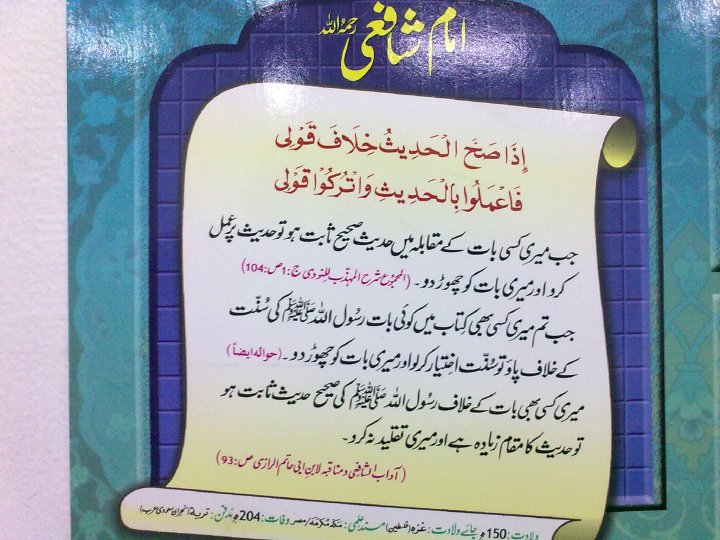 امام شافعی رحمہُ اللہ
إِذَا صَحَّ الْحَدِيثُ خِلَافَ قَوْلِى
فَاعْمَلُوا بِالْحَدِيثِ وَاتْرُكُوْا قَوْلِى
جب میری کسی بات کے مقابلہ میں حدیث صحیح ثابت ہو تو حدیث پر عمل
کرو اور میری بات کو چھوڑ دو۔ (المجموع شرح المہذّب للنووی ج:1ص:104)
جب تم میری کسی بھی کتاب میں کوئی بات رسُول اللہ ﷺ کی سُنّت
کے خلاف پاؤ تو سُنّت اختیار کرلو اور میری بات کو چھوڑ دو۔ (حوالہ ایضاً)
میری کسی بھی بات کے خلاف رسُول اللہ ﷺ کی صحیح حدیث ثابت ہو
تو حدیث کا مقام زیادہ ہے اور میری تقلید نہ کرو۔
(آداب الشافعی ومناقبہ لابن ابی حاتم الرازی ص:93)
ولادت:150ھ جائے ولادت: غزہ (فلسطین) مسند علمی: مکہ مکرمہ/مصر وفات:204ھ مدفن: